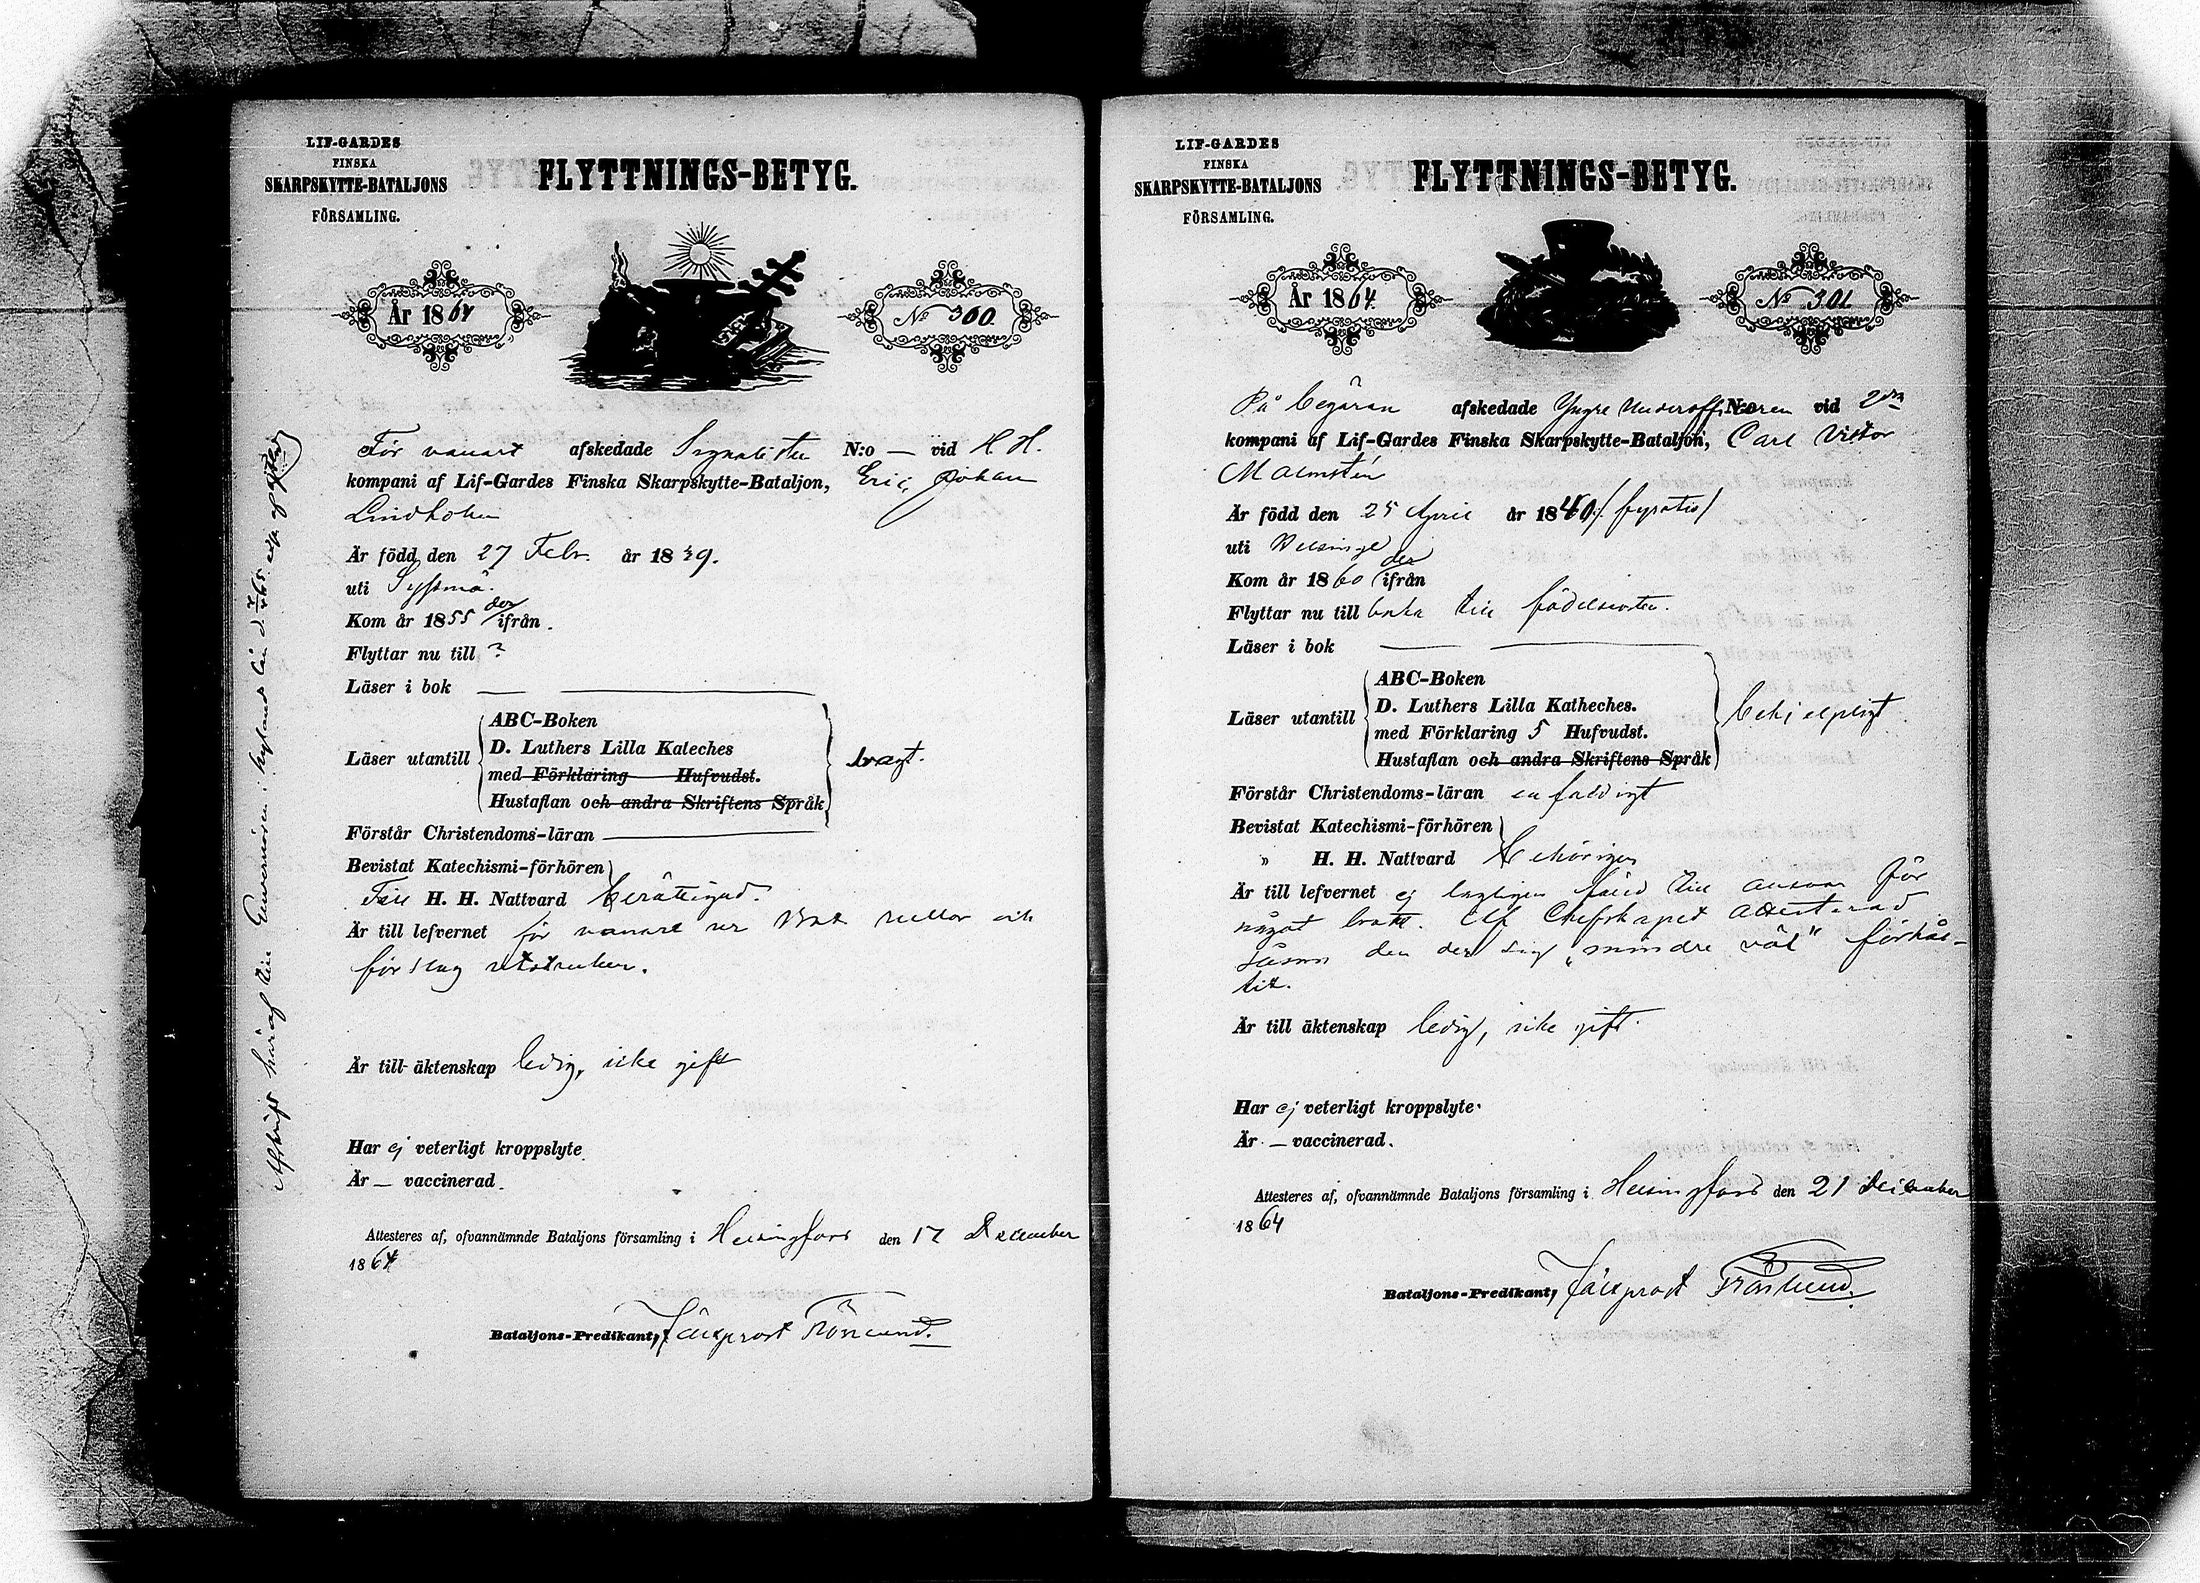 LIF-GARDES
FINSKA
SKARPSKYTTE-BATALJONS
FÖRSAMLING.
FLYTTNINGS-BETYG.
År 1864
No 300
För vanart afskedade Signalisten N:o — vid H. H.
kompani af Lif-Gardes Finska Skarpskytte-Bataljon, Eric Johan
Lindholm
Är född den 27 Febr. år 1839.
uti Syssmä.
Kom år 1855 der/ifrån.
Flyttar nu till ?
Läser i bok —
Läser utantill
ABC-Boken
D. Luthers Lilla Kateches
med Förklaring Hufvudst.
Hustaflan och andra Skriftens Språk
svagt.
Förstår Christendoms-läran —
Bevistat Katechismi-förhören
Till H. H. Nattvard berättigad.
Är till lefvernet för vanart ur
förslag utstruken.
Är till äktenskap ledig, icke gift
Har ej veterligt kroppslyte
Är — vaccinerad.
Attesteres af, ofvannämnde Bataljons församling i Helsingfors den 17 December
1864
Bataljons-Predikant, Fältprost
Afskrift häraf till Guvernören i Nylands län
LIF-GARDES
FINSKA
SKARPSKYTTE-BATALJONS
FÖRSAMLING.
FLYTTNINGS-BETYG.
År 1864
No 301
På begäran afskedade Yngre Underofficeren N:o vid 2dra
kompani af Lif-Gardes Finska Skarpskytte-Bataljon, Carl Victor
Malmstén
Är född den 25 April år 1840 /fyratio/
uti Helsinge
Kom år 1860 der/ifrån
Flyttar nu till baka till födelseorten.
Läser i bok —
Läser utantill
ABC-Boken
D. Luthers Lilla Katheches.
med Förklaring 5 Hufvudst.
Hustaflan och andra Skriftens Språk
behjelpligt
Förstår Christendoms-läran enfaldigt
Bevistat Katechismi-förhören
" H. H. Nattvard behörigen
Är till lefvernet ej lagligen fäld till ansvar för
något brott. Af Chefskapet attesterad
såsom den der sig "mindre väl" förhål-
lit.
Är till äktenskap ledig, icke gift.
Har ej veterligt kroppslyte.
Är — vaccinerad.
Attesteres af, ofvannämnde Bataljons församling i Helsingfors den 21 December
1864
Bataljons-Predikant, Fältprost